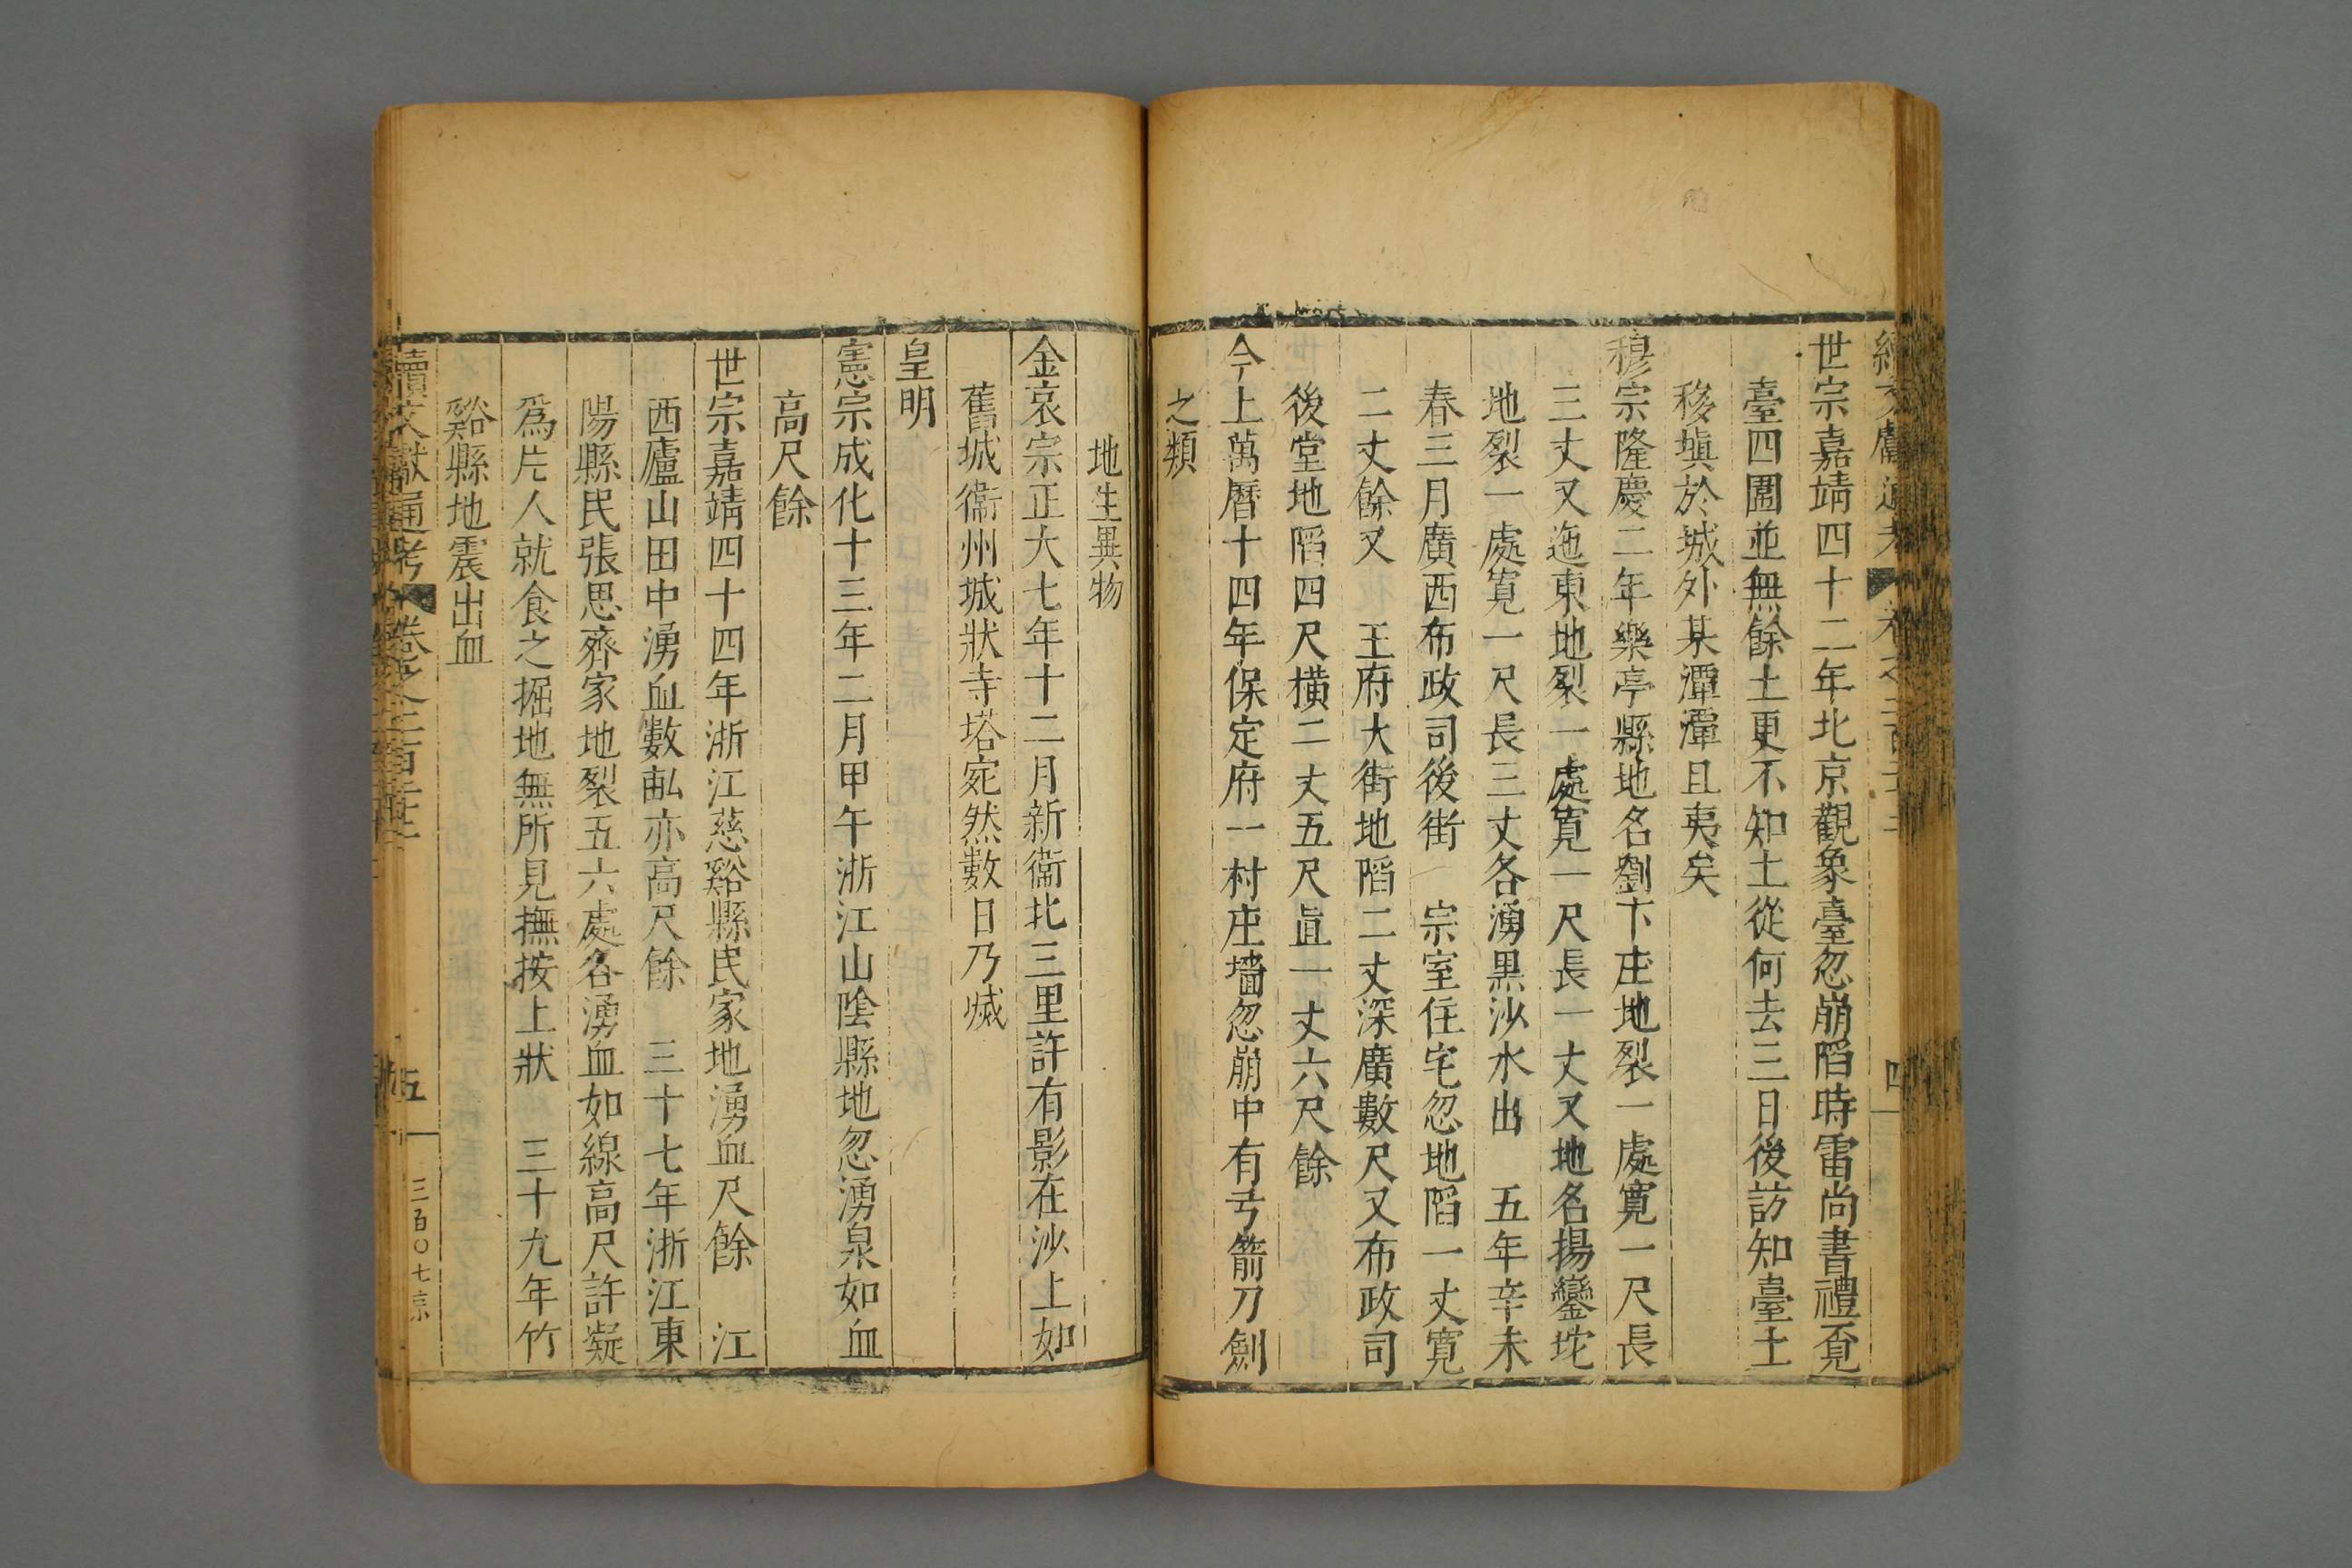 世宗嘉靖四十二年北京觀象臺忽崩陷時雷尚書禮覔
臺四圍並無餘土更不知土從何去三日後訪知臺土
移塡於城外某潭潭且夷矣
穆宗隆慶二年樂亭縣地名劉卞庄地裂一處寛一尺長
三丈又迤東地裂一處寛一尺長一丈又地名揚鑾坨
地裂一處寛一尺長三丈各湧黒沙水出　五年辛未
春三月廣西布政司後街　宗室住宅忽地陷一丈寛
二丈餘又　王府大街地陷二丈深廣數尺又布政司
後堂地陷四尺横二丈五尺直一丈六尺餘
今上萬曆十四年保定府一村庄墻忽崩中有弓箭刀劍
之類
地生異物
金哀宗正大七年十二月新衞北三里許有影在沙上如
舊城衞州城狀寺塔宛然數日乃滅
皇明
憲宗成化十三年二月甲午浙江山陰縣地忽湧泉如血
高尺餘
世宗嘉靖四十四年浙江慈谿縣民家地湧血尺餘　江
西廬山田中湧血數畝亦高尺餘　三十七年浙江東
陽縣民張思齊家地裂五六處各湧血如線高尺許凝
爲片人就食之掘地無所見撫按上狀　三十九年竹
谿縣地震出血
續文獻通考
五
三百〇七